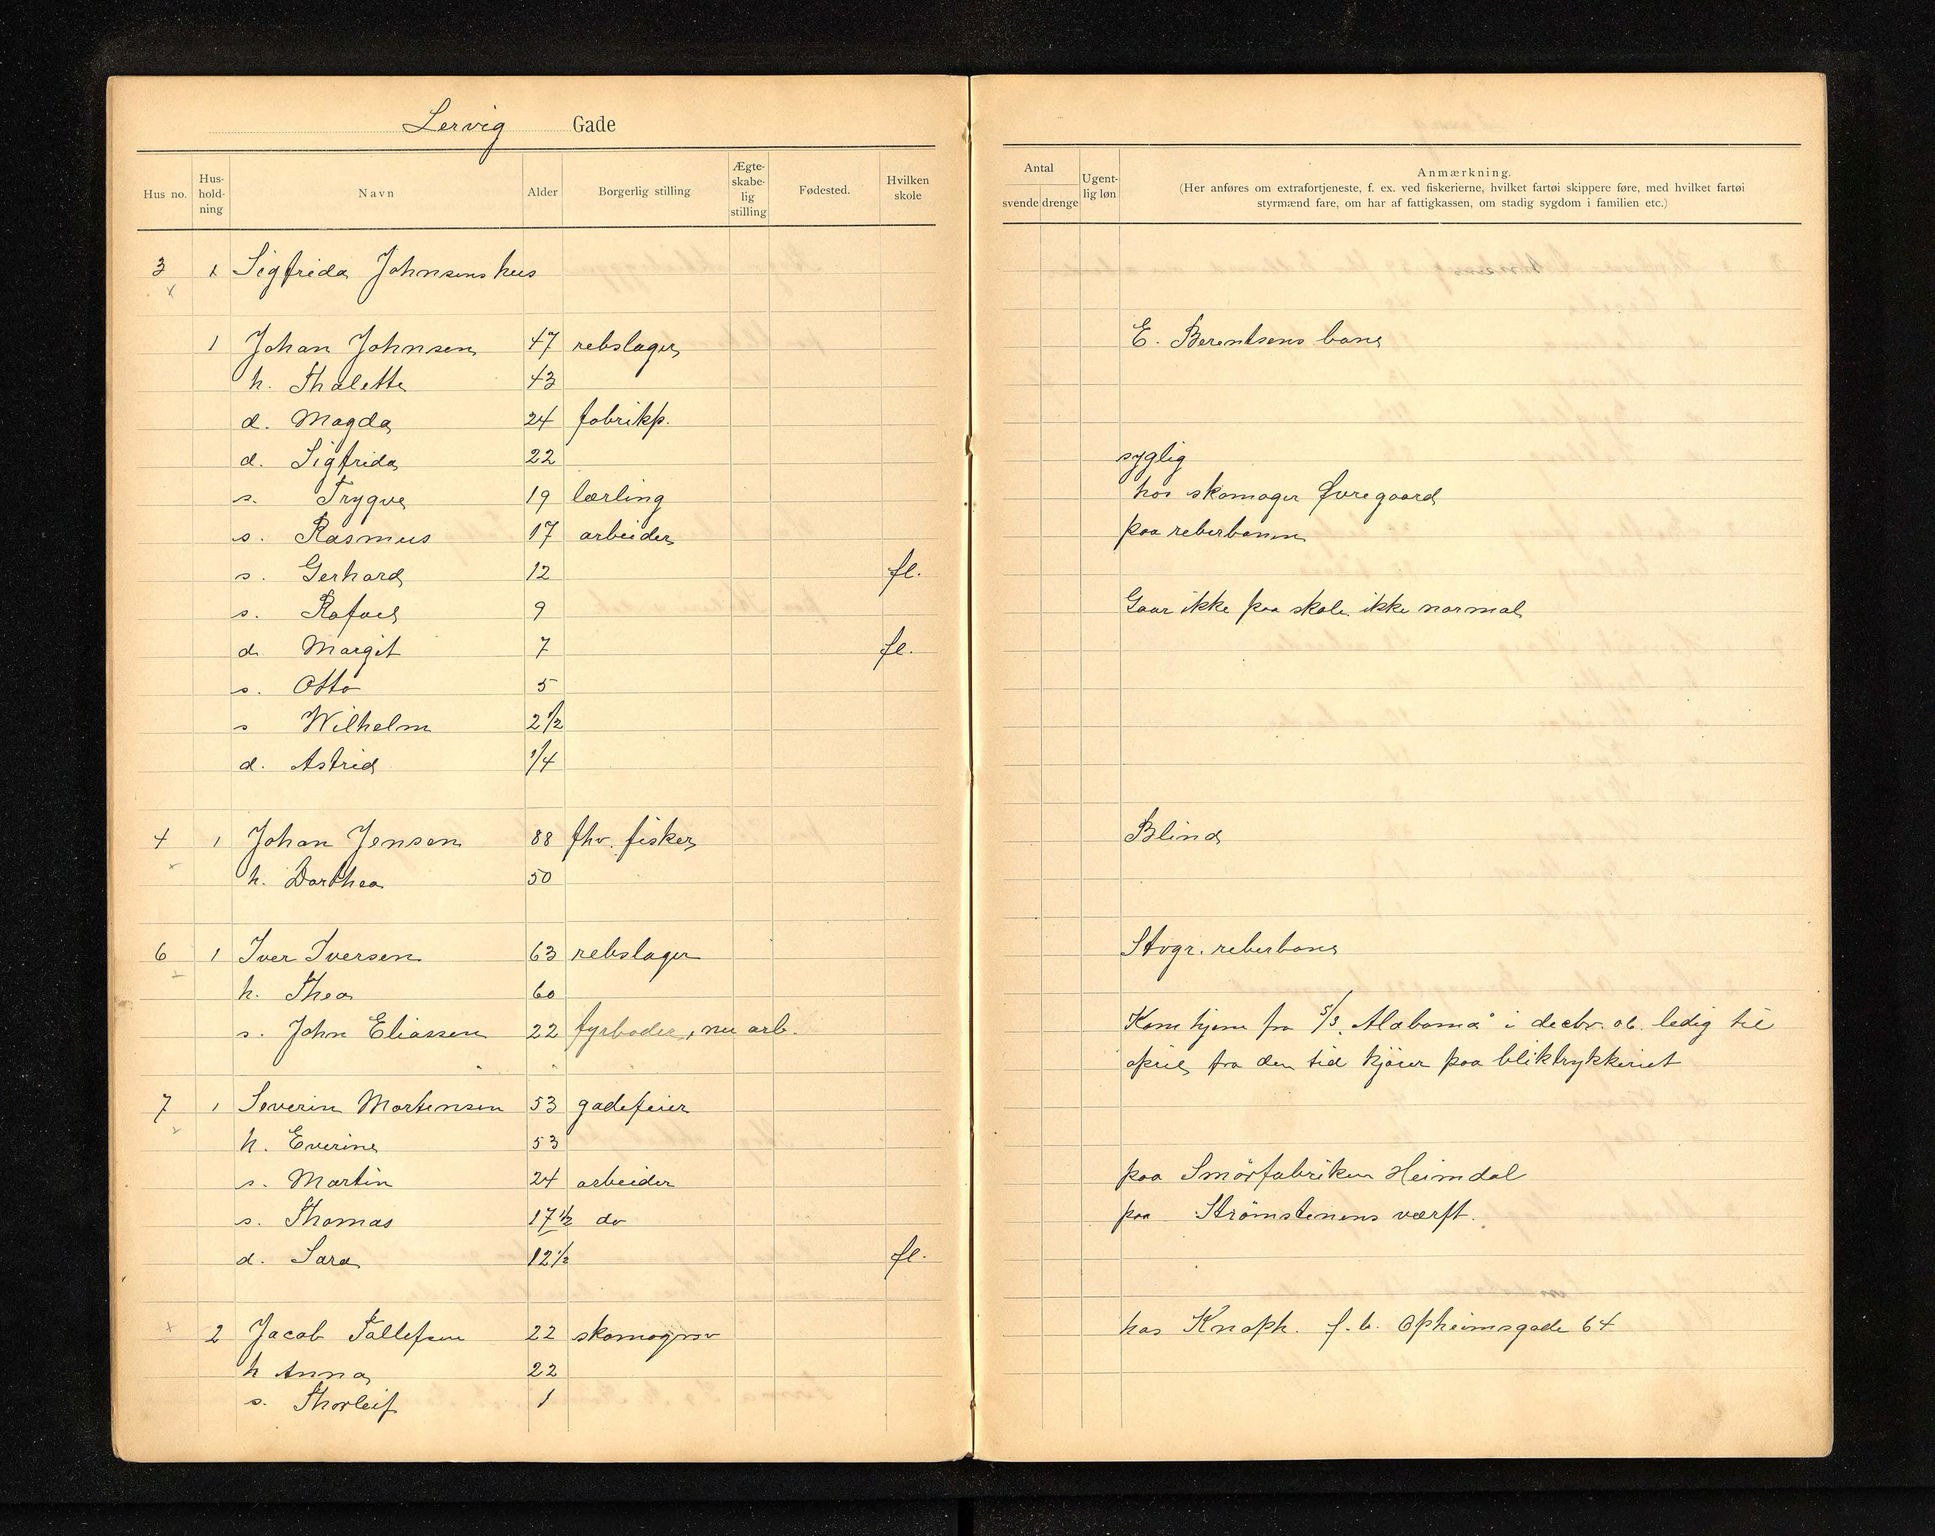 Lervig Gade
Hus no. Hus-hold-ning Navn Alder Borgerlig stilling Ægte-skabe-lig stilling Fødested. Hvilken skole
Antal svende drenge Ugent-lig løn Anmærkning.
(Her anføres om extrafortjeneste, f. ex. ved fiskerierne, hvilket fartøi skippere føre, med hvilket fartøi
styrmænd fare, om har af fattigkassen, om stadig sygdom i familien etc.)
3 x Sigfrida Johnsens hus
1 Johan Johnsen 47 rebslager E. Berentsens bane
h. Thalette 43
d. Magda 24 fabrikp.
d. Sigfrida 22 syglig
s. Trygve 19 lærling hos skomager Øvregaard
s. Rasmus 17 arbeider paa reberbanen
s. Gerhard 12 fl.
s. Rafael 9 Gaar ikke paa skole, ikke normal
d. Margit 7 fl.
s. Otto 5
s Wilhelm 2 1/2
d. Astrid 1/4
4 1 Johan Jensen 88 fhv. fisker Blind
h. Dorthea 50
6 1 Iver Iversen 63 rebslager Stvgr. reberbane
h. Thea 60
s. John Eliassen 22 fyrbøder, nu arb. Kom hjem fra S/S. "Alabama" i decbr. 06. ledig til
april, fra den tid kjører paa bliktrykkeriet
7 1 Severin Mortensen 53 gadefeier
h. Everine 53
s. Martin 24 arbeider paa Smörfabriken Heimdal
s. Thomas 17 1/2 do paa Strömstenens værft.
d. Sara 12 1/2 fl.
2 Jacob Tollefsen 22 skomagersv hos Knaph. f. b. Opheimsgade 64
h Anna 22
s. Thorleif 1